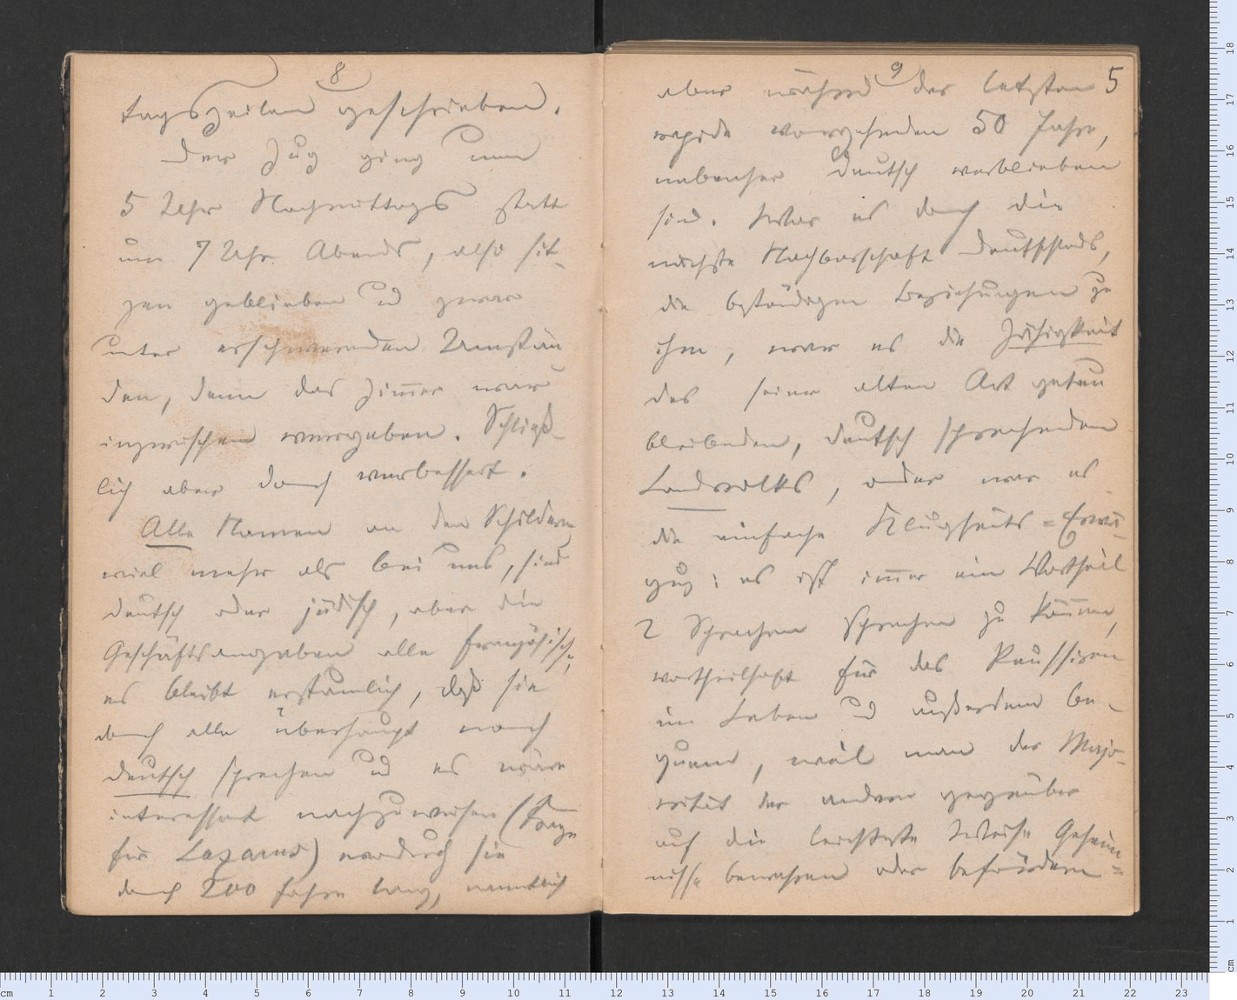 8
tagszeilen geschrieben.
Der Zug ging um
5 Uhr Nachmittags statt
um 7 Uhr Abends, also sit-
zen geblieben und zwar
unter erschwerenden Umstän
den, denn das Zim̅er war
inzwischen vergeben. Schließ-
lich aber doch verbessert.
Alle Namen an den Schildern
viel mehr als bei uns, sind
deutsch oder jüdisch, aber die
Geschäftsangaben alle französisch,
es bleibt erstaunlich, daß sie
doch alle überhaupt noch
deutsch sprechen und es wäre
interessant nachzuweisen (Frage
für Lazarus) wodurch sie
durch 200 Jahre lang, namentlich
9
5
aber während der letzten
rapide vorgehenden 50 Jahre,
nebenher deutsch verblieben
sind. War es doch die
nächste Nachbarschaft Deutschlands,
die beständigen Beziehungen zu
ihm, war es die Zähigkeit
des seiner alten Art getreu
bleibenden, deutsch sprechenden
Landvolks, oder war es
die einfache Klugheits-Erwä-
gung: es ist im̅er ein Vortheil
2 Sprachen sprechen zu kön̅en,
vortheilhaft für das Reussiren
im Leben und außerdem be-
quem, weil man der Majo-
rität der andern gegenüber
auf die leichteste Weise Geheim-
nisse bewahren oder befördern